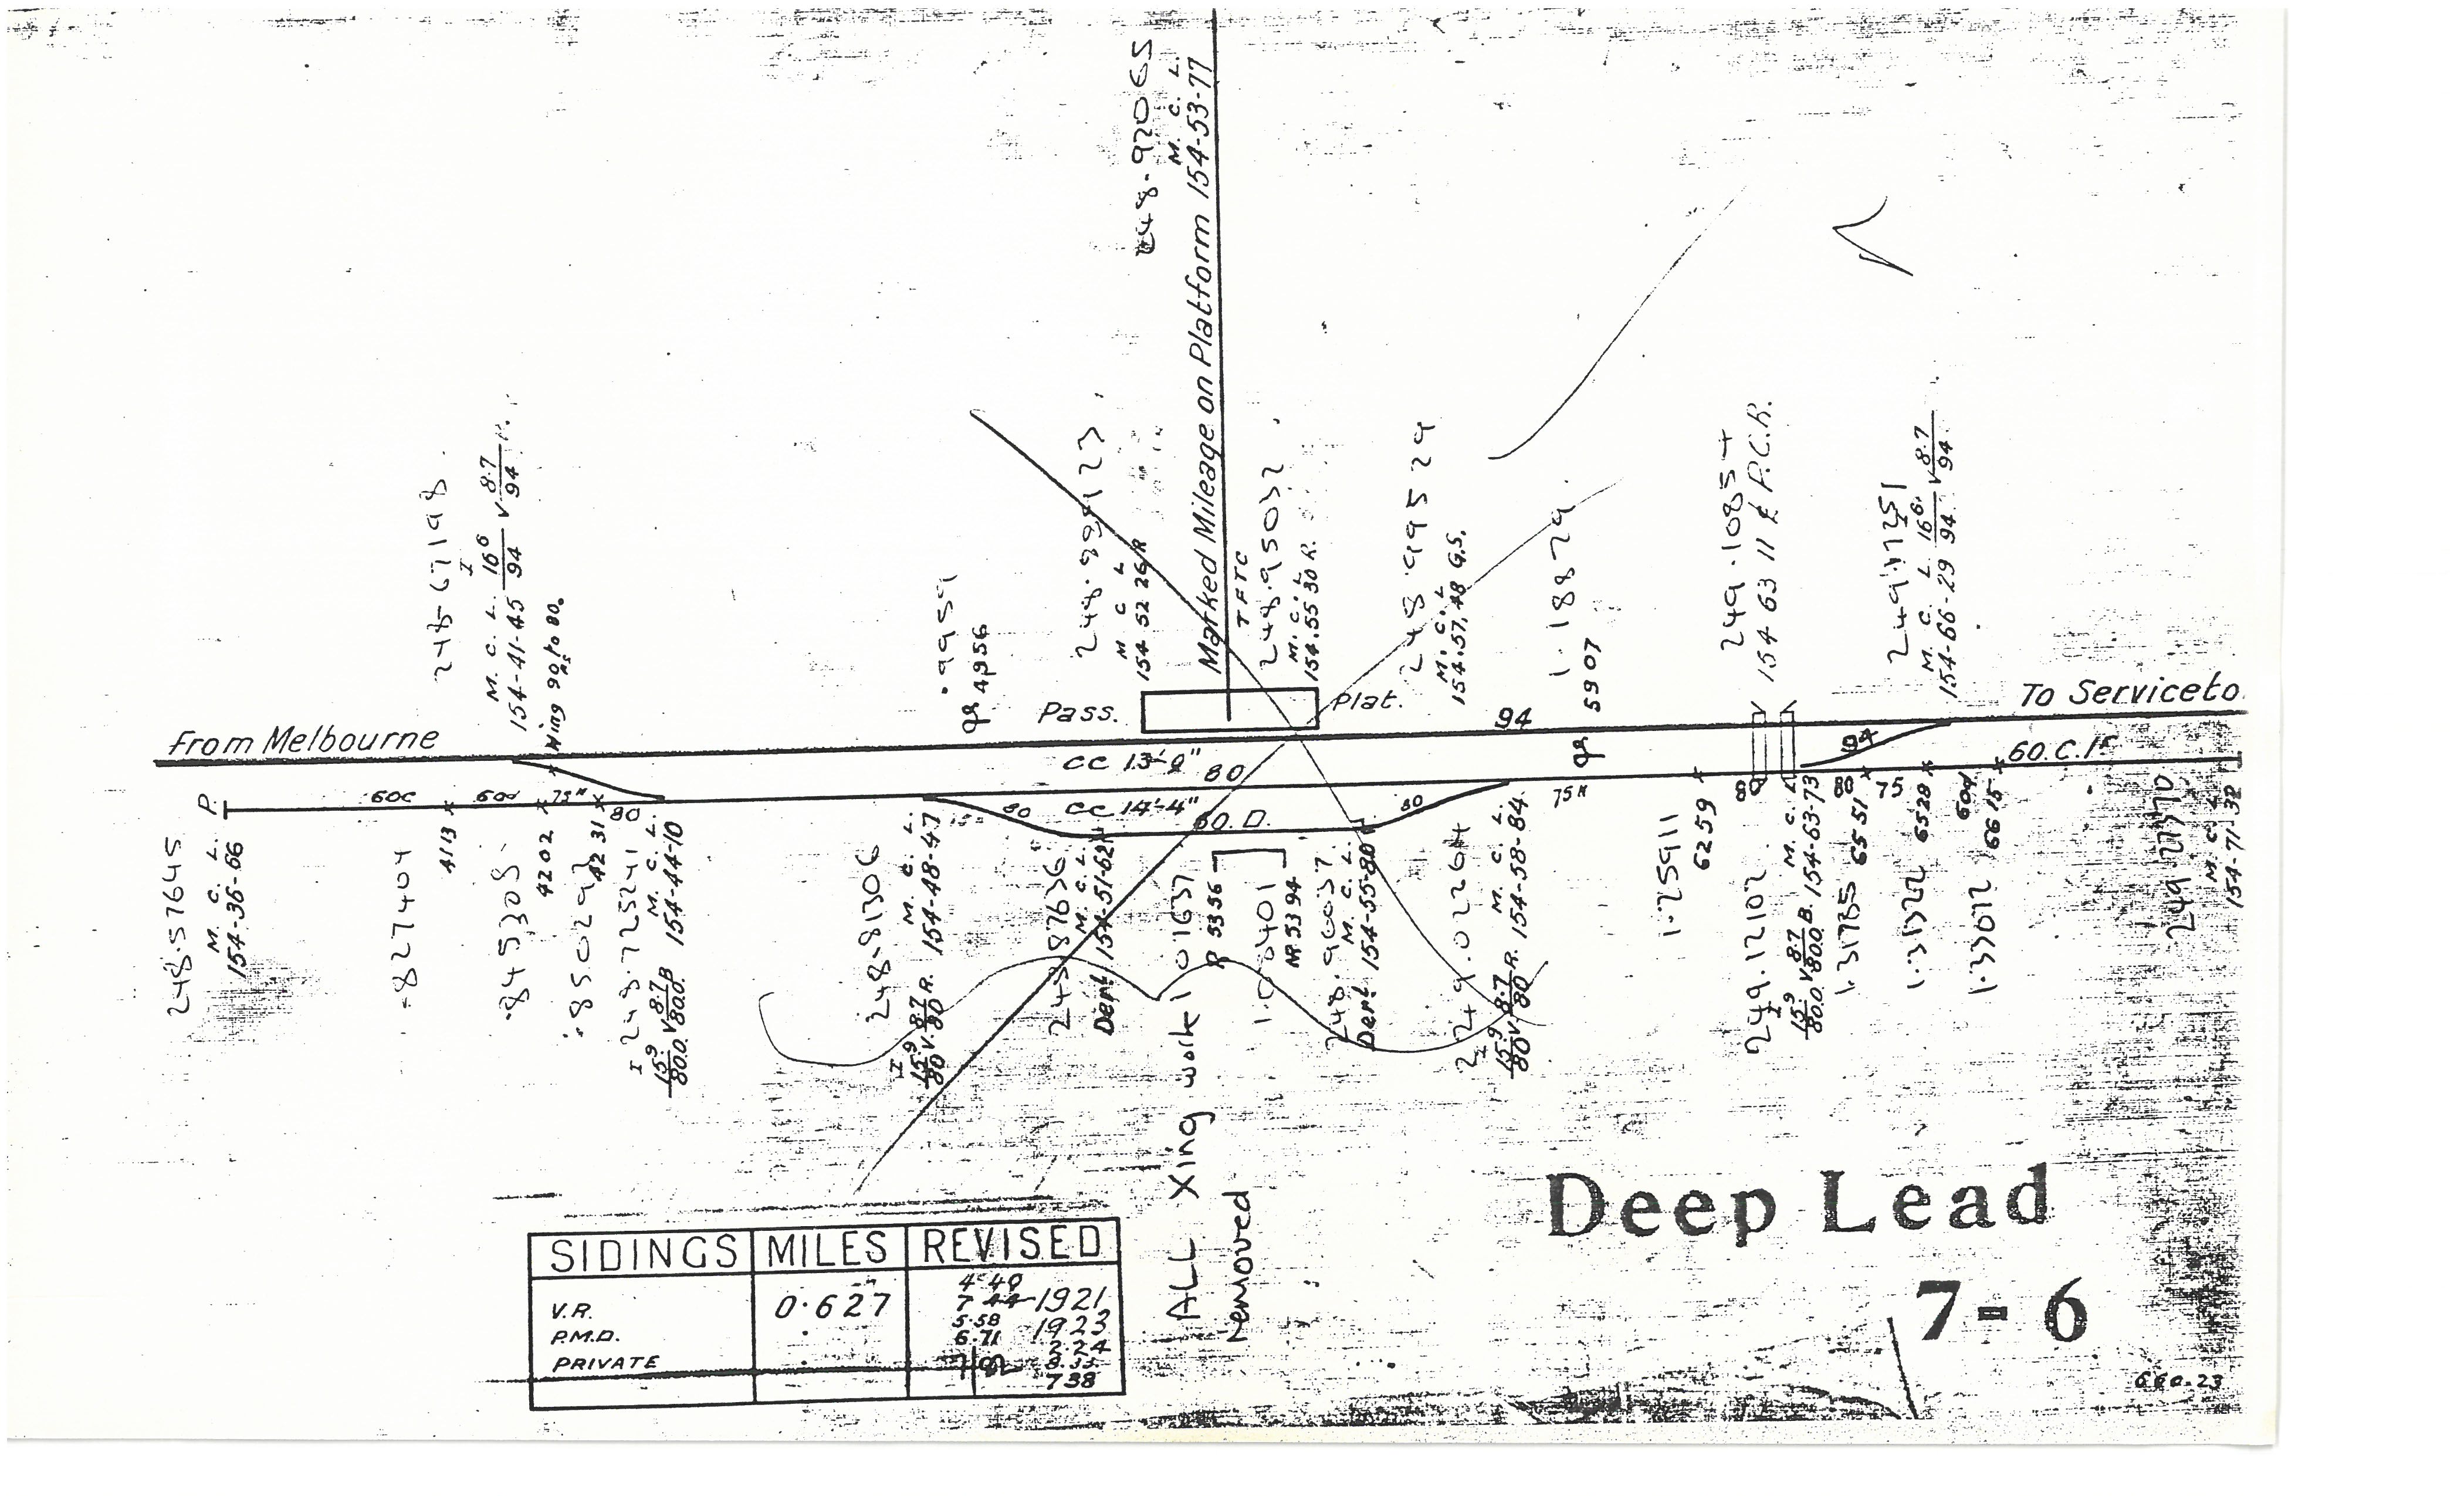 248.92065
M. C. L.
Marked Mileage on Platform 154-53-77
M. C. L. 16⁶/94 V 8·7/94 R.
154-41-45
Wing 90 to 80.
.9959
4956
M C L
154 52 26 R
TFTC
248.95032
M. C. L
154.55 30 R.
248.99529
M. C. L
154.57.48 G.S.
1.18829
59 07
249.10854
154 63 11 ₵ P.C.R.
M. C. L. 16⁶/94 V 8·7/94
154-66-29
From Melbourne
Pass.
Plat.
94
To Serviceto
CC 13'-9"
80
94
60.C.
P.
60c
60d
75#
80
80
CC 14'-4"
60. D.
80
75#
80
80
75
60d
248.57645
M. C. L.
154-36-66
.827404
4113
.845308
4202
.85029
4231
248.725241
M. C. L.
154-44-10
15·9/80.0 V 8·7/80.0 B
248.81306
M. C. L.
154-48-47
15·9/80 V 8·7/80 R.
248.87636
M. C. L.
Derl 154-51-62
1.01637
R 53 56
1.00401
NR 53 94
248.96037
M. C. L.
Derl 154-55-80
249.02264
M. C. L.
15·9/80 V 8·7/80 R. 154-58-84
1.25911
6259
249.12102
M. C. L.
15·9/80.0 V 8·7/80.0 B. 154-63-73
1.31785
65 51
65 28
1.33072
66 15
M. C. L.
154-71-32
ALL Xing work
removed
SIDINGS MILES REVISED
V.R. 0·627
P.M.D.
PRIVATE
4·40
7 44 1921
5·58 1923
6·71 2·24
8·33
7 38
Deep Lead
7-6
660-23